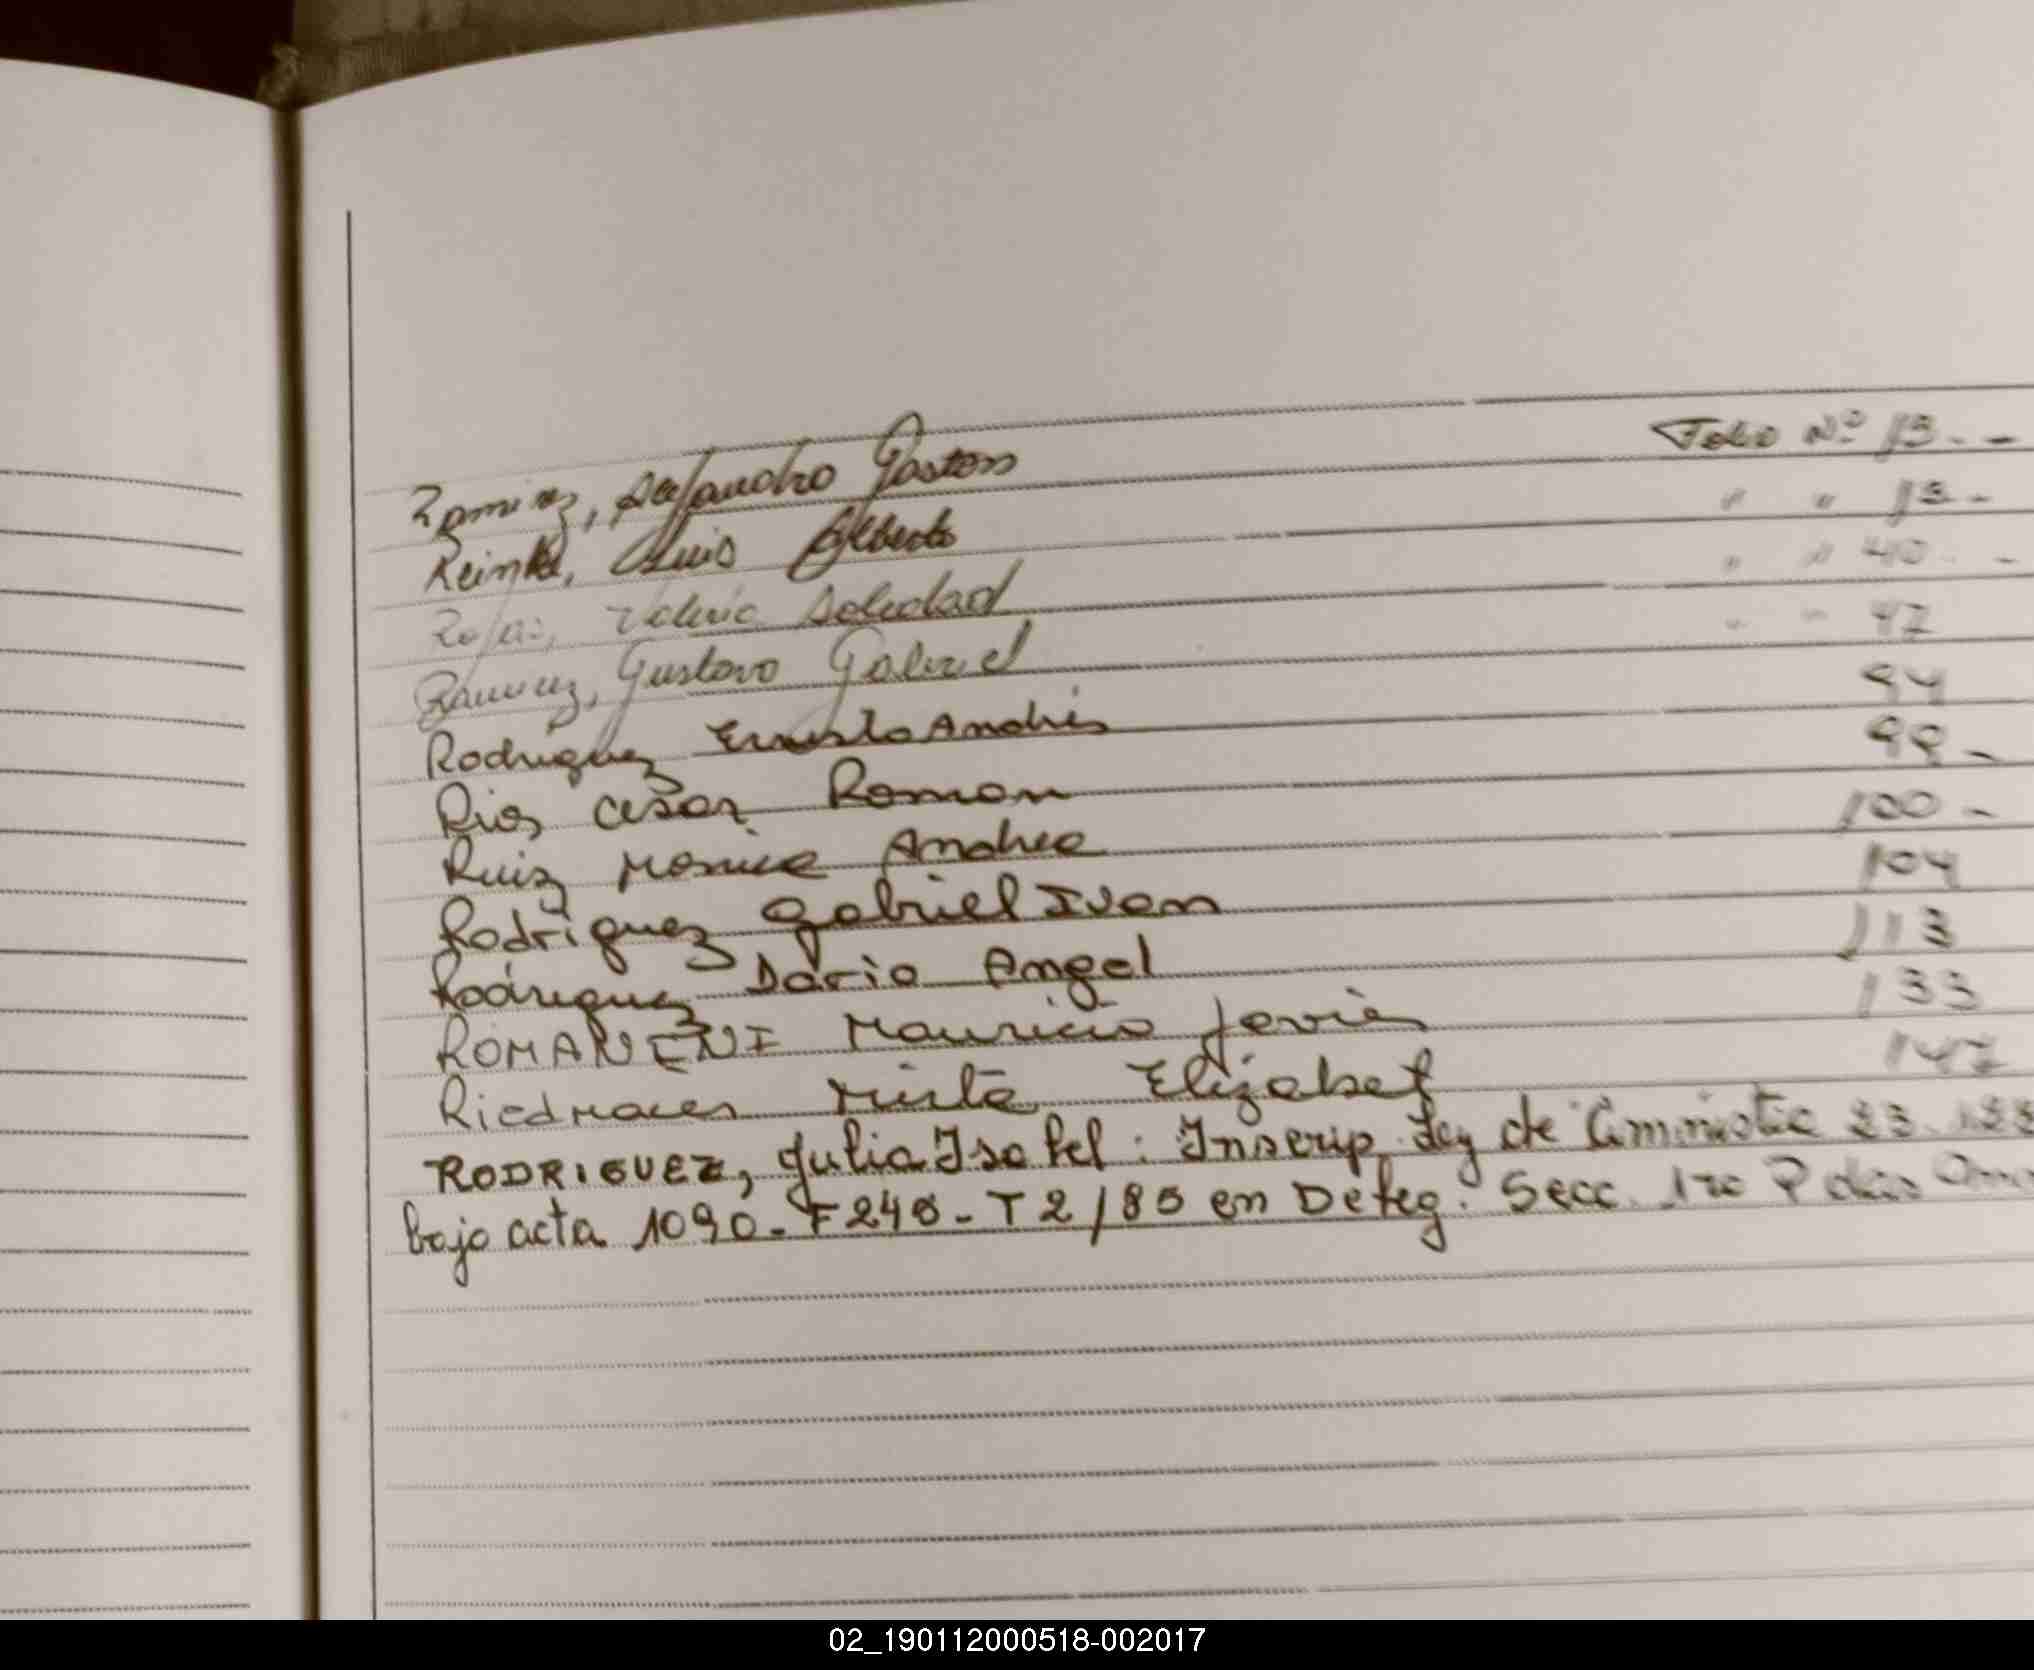 Ramirez, Alejandro Gaston Folio Nº 13. -
Reinke, Luis Alberto " " 13 -
Rojas, Valeria Soledad " " 40 - -
Ramirez, Gustavo Gabriel " " 47
Rodriguez Ernesto Andrés 94
Rios Cesar Roman 98 -
Ruiz Monica Andrea 100 -
Rodriguez Gabriel Ivan 104
Rodriguez Dario Angel 113
ROMANENI Mauricio Javier 133
Mirta Elizabet 147
RODRIGUEZ, Julia Isabel : Inscrip. Ley de 23.
bajo acta 1090 - F 248 - T 2 / 85 en Deleg. Secc. 1ra
02_190112000518-002017